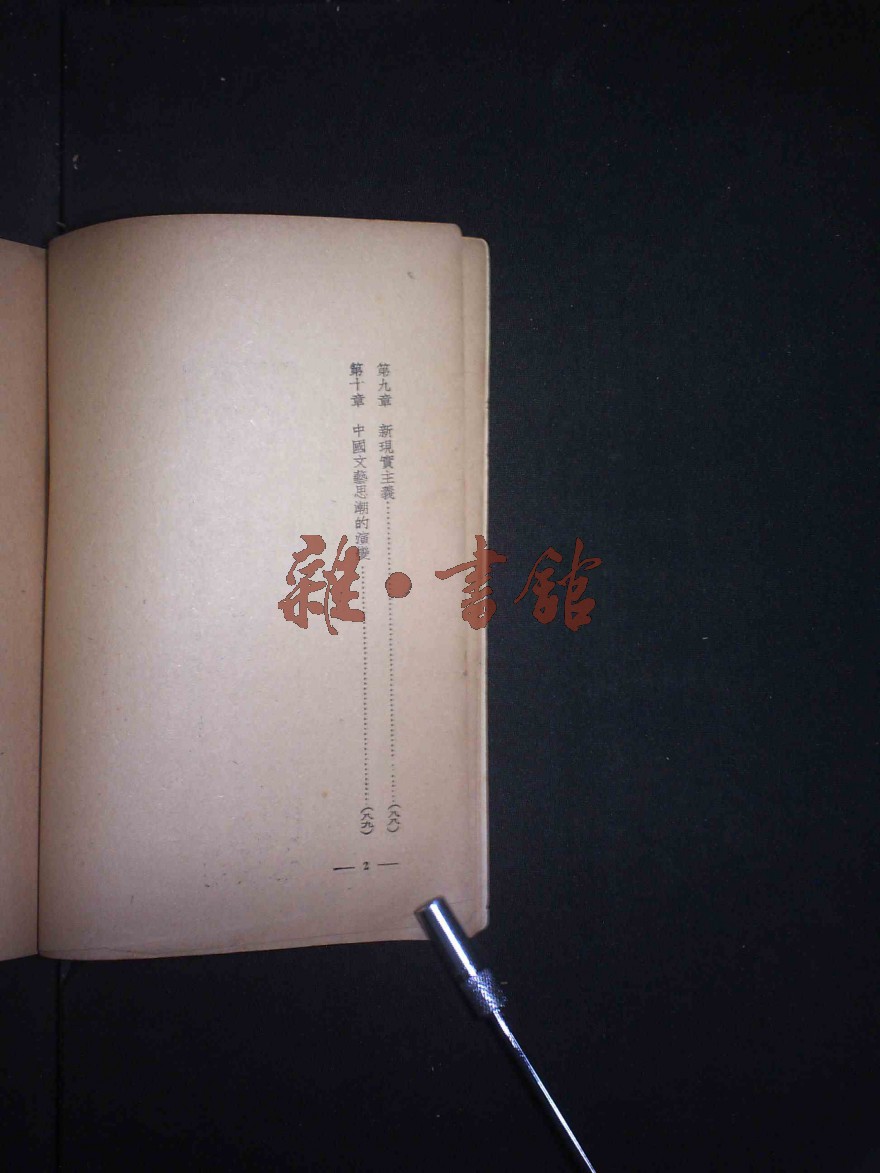 第九章　新現實主義
第十章　中國文藝思潮的演變
— 2 —
雜·書館